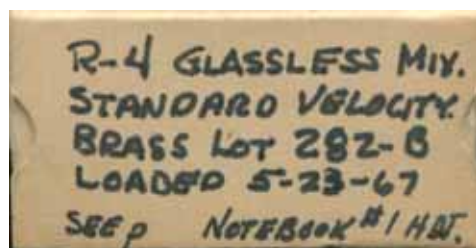 R-4 GLASSLESS MIX.
STANDARD VELOCITY.
BRASS LOT 282-B
LOADED 5-23-67
SEE p NOTEBOOK #1